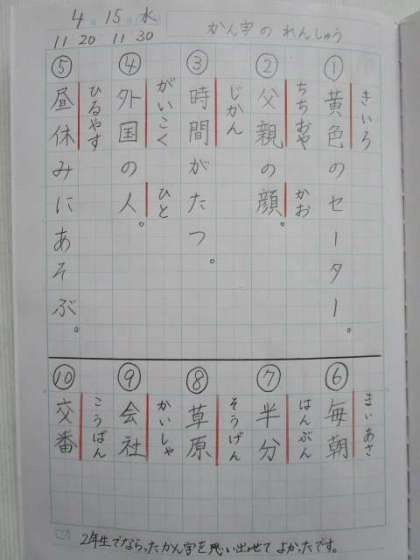 4. 15. 水
11 20 11 30
かん字のれんしゅう
きいろ
①黄色のセーター。
ちちおや かお
②父親の顔。
じかん
③時間がたつ。
がいこく ひと
④外国の人。
ひるやす
⑤昼休みにあそぶ。
まいあさ
⑥毎朝
はんぶん
⑦半分
そうげん
⑧草原
かいしゃ
⑨会社
こうばん
⑩交番
2年生でならったかん字を思い出せてよかったです。